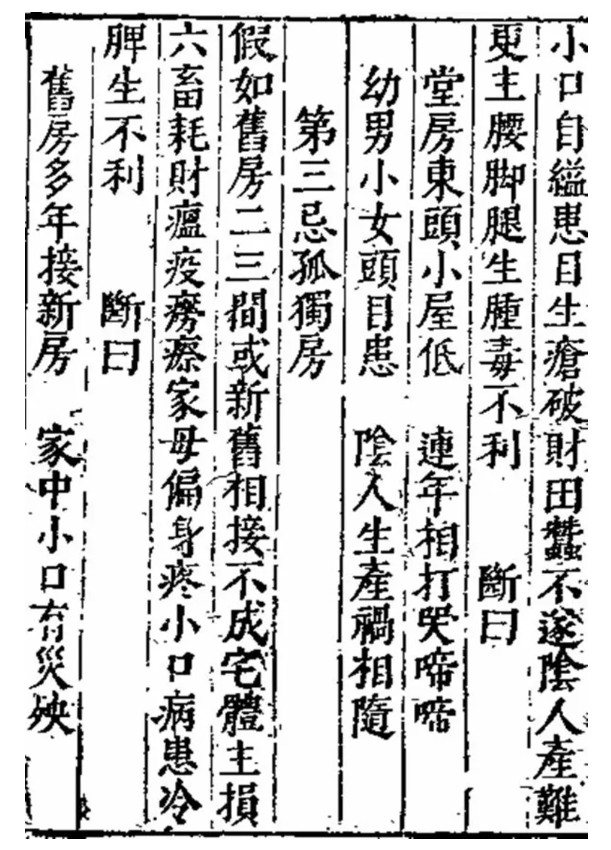 小口自縊患目生瘡破財田蠶不遂陰人產難
更主腰脚腿生腫毒不利　斷曰
堂房東頭小屋低　連年相打哭啼啼
幼男小女頭目患　陰人生產禍相隨
第三忌孤獨房
假如舊房二三間或新舊相接不成宅體主損
六畜耗財瘟疫癆瘵家母偏身疼小口病患冷
脾生不利　斷曰
舊房多年接新房　家中小口有災殃